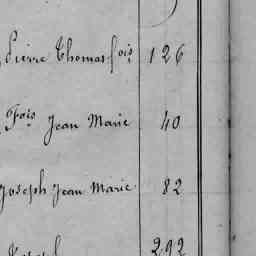 Pierre Thomas fois 126
Fois Jean Marie 40
Joseph Jean Marie 82
Joseph 292